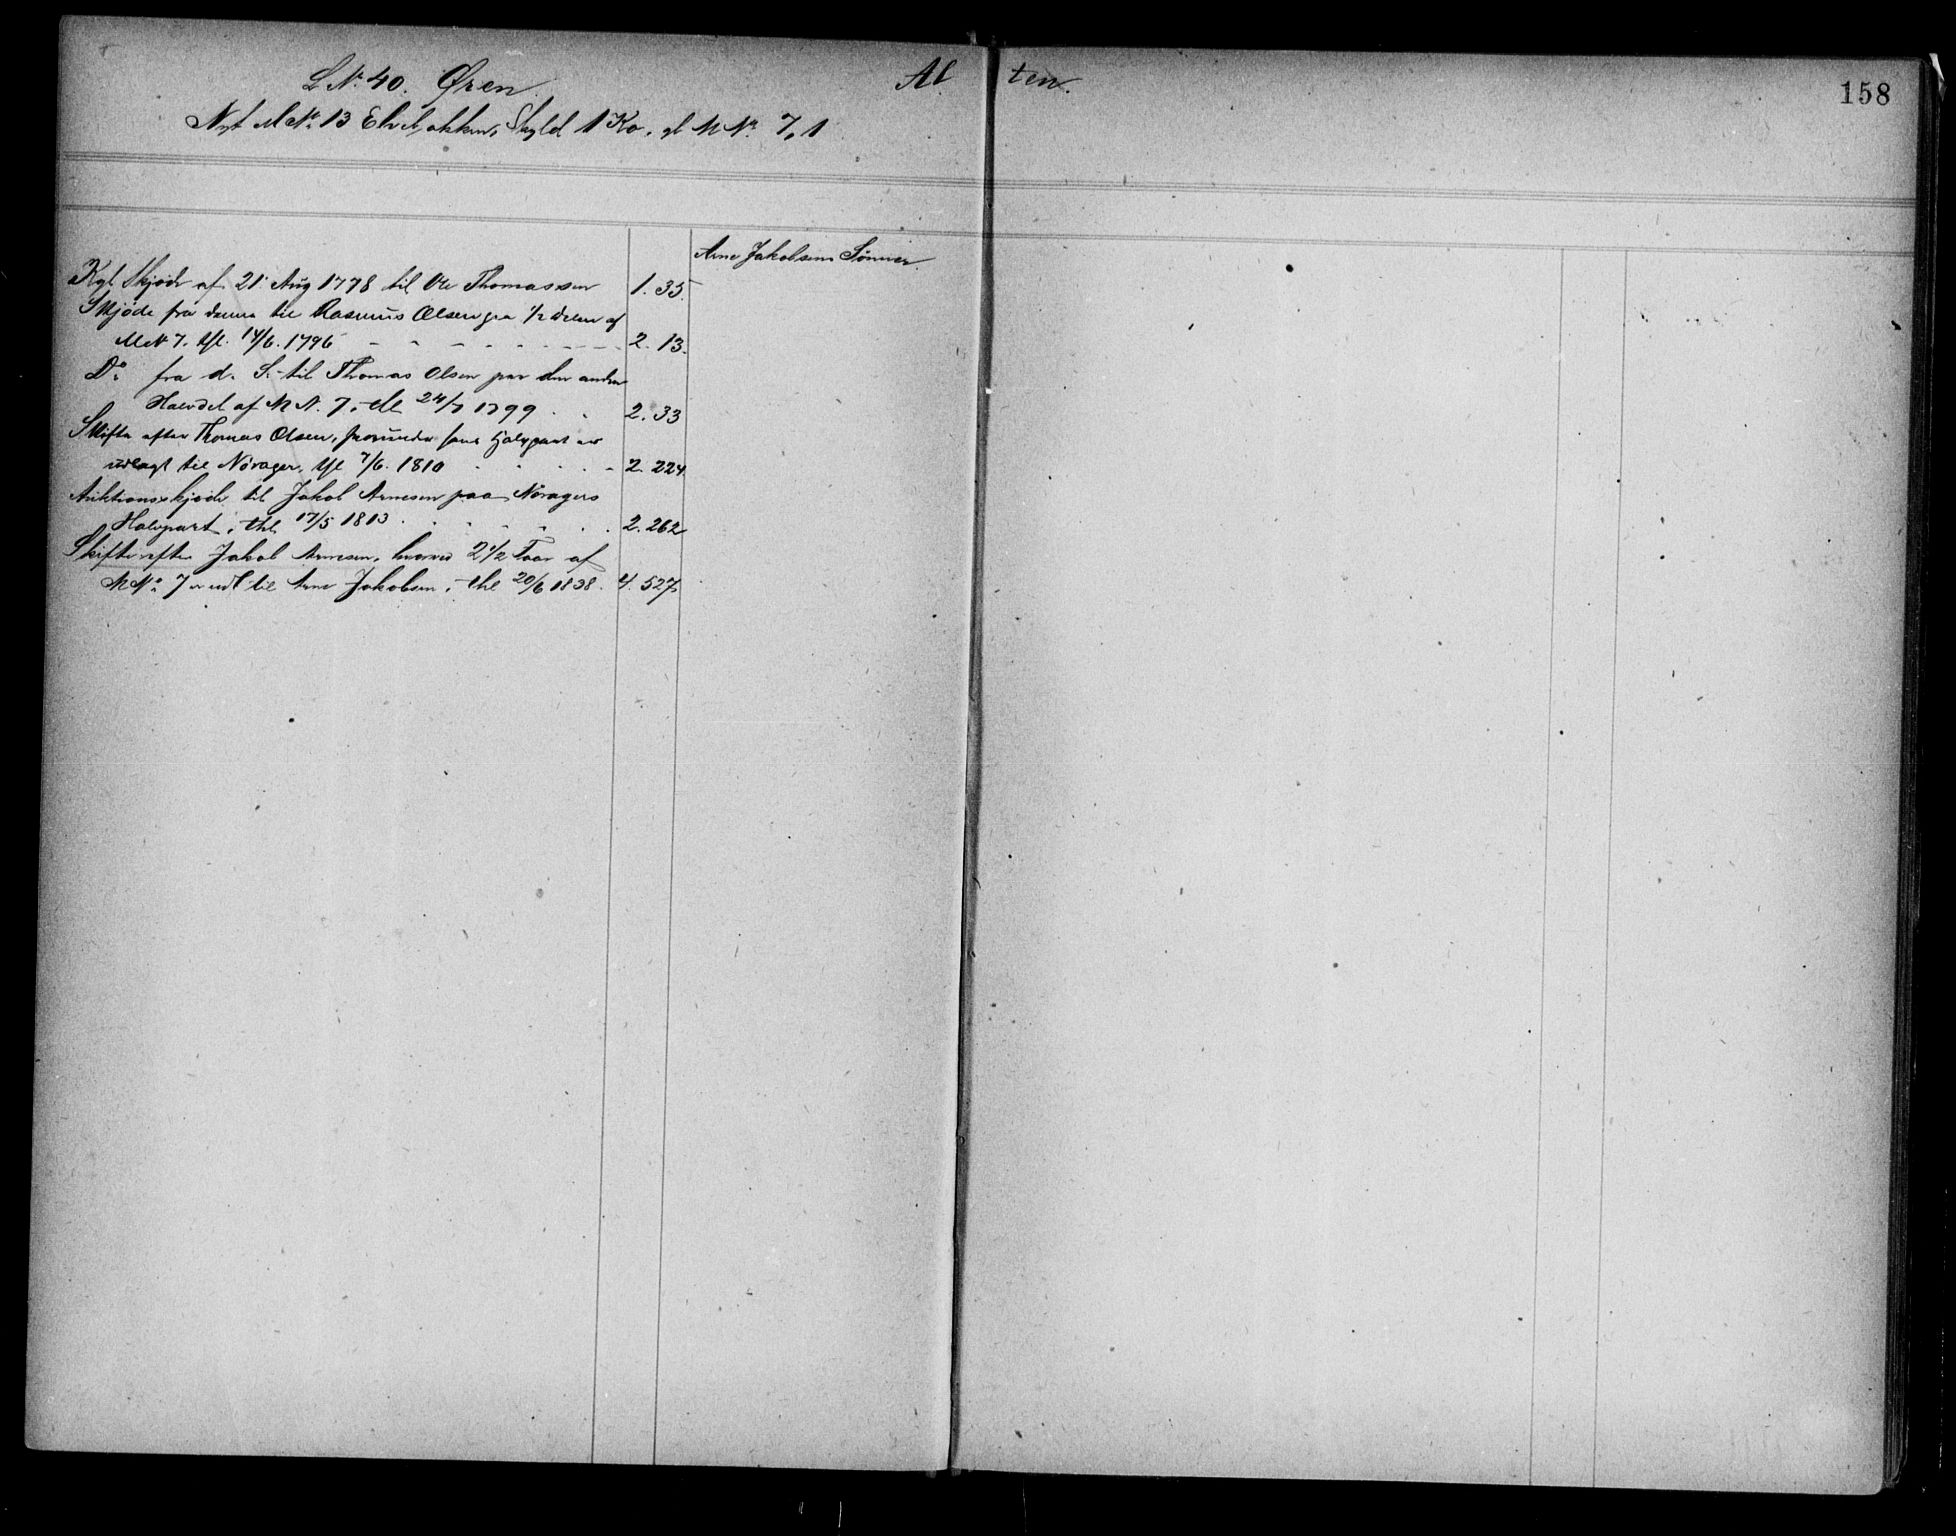 L.N. 40. Øren. Al ten. 158
Nyt M.No. 13 Elvebakken, Skyld 1 Ko, gl M.No. 7,1
Arne Jakobsens Sönner.
Kgl. Skjøde af 21 Aug 1778 til Ole Thomassen 1. 35.
Skjøde fra denne til Rasmus Olsen paa 1/2 Delen af
M.N. 7. thl. 14/6. 1796 - - - - - - - 2. 13.
Do. fra d. S. til Thomas Olsen paa den anden
Halvdel af M.N. 7, thl 24/7 1799 . . 2. 33
Skifte efter Thomas Olsen, hvorunder hans Halvpart er
udlagt til Nörager, thl 7/6. 1810 . . . . - 2. 224.
Auktionsskjøde til Jakob Arnesen paa Nöragers
Halvpart, thl 17/5 1813 . . . . . . 2. 262
Skifte efter Jakob Arnesen, hvorved 2 1/2 Faar af
M.No. 7 er udl til Arne Jakobsen, thl 20/6 1838. 4. 527